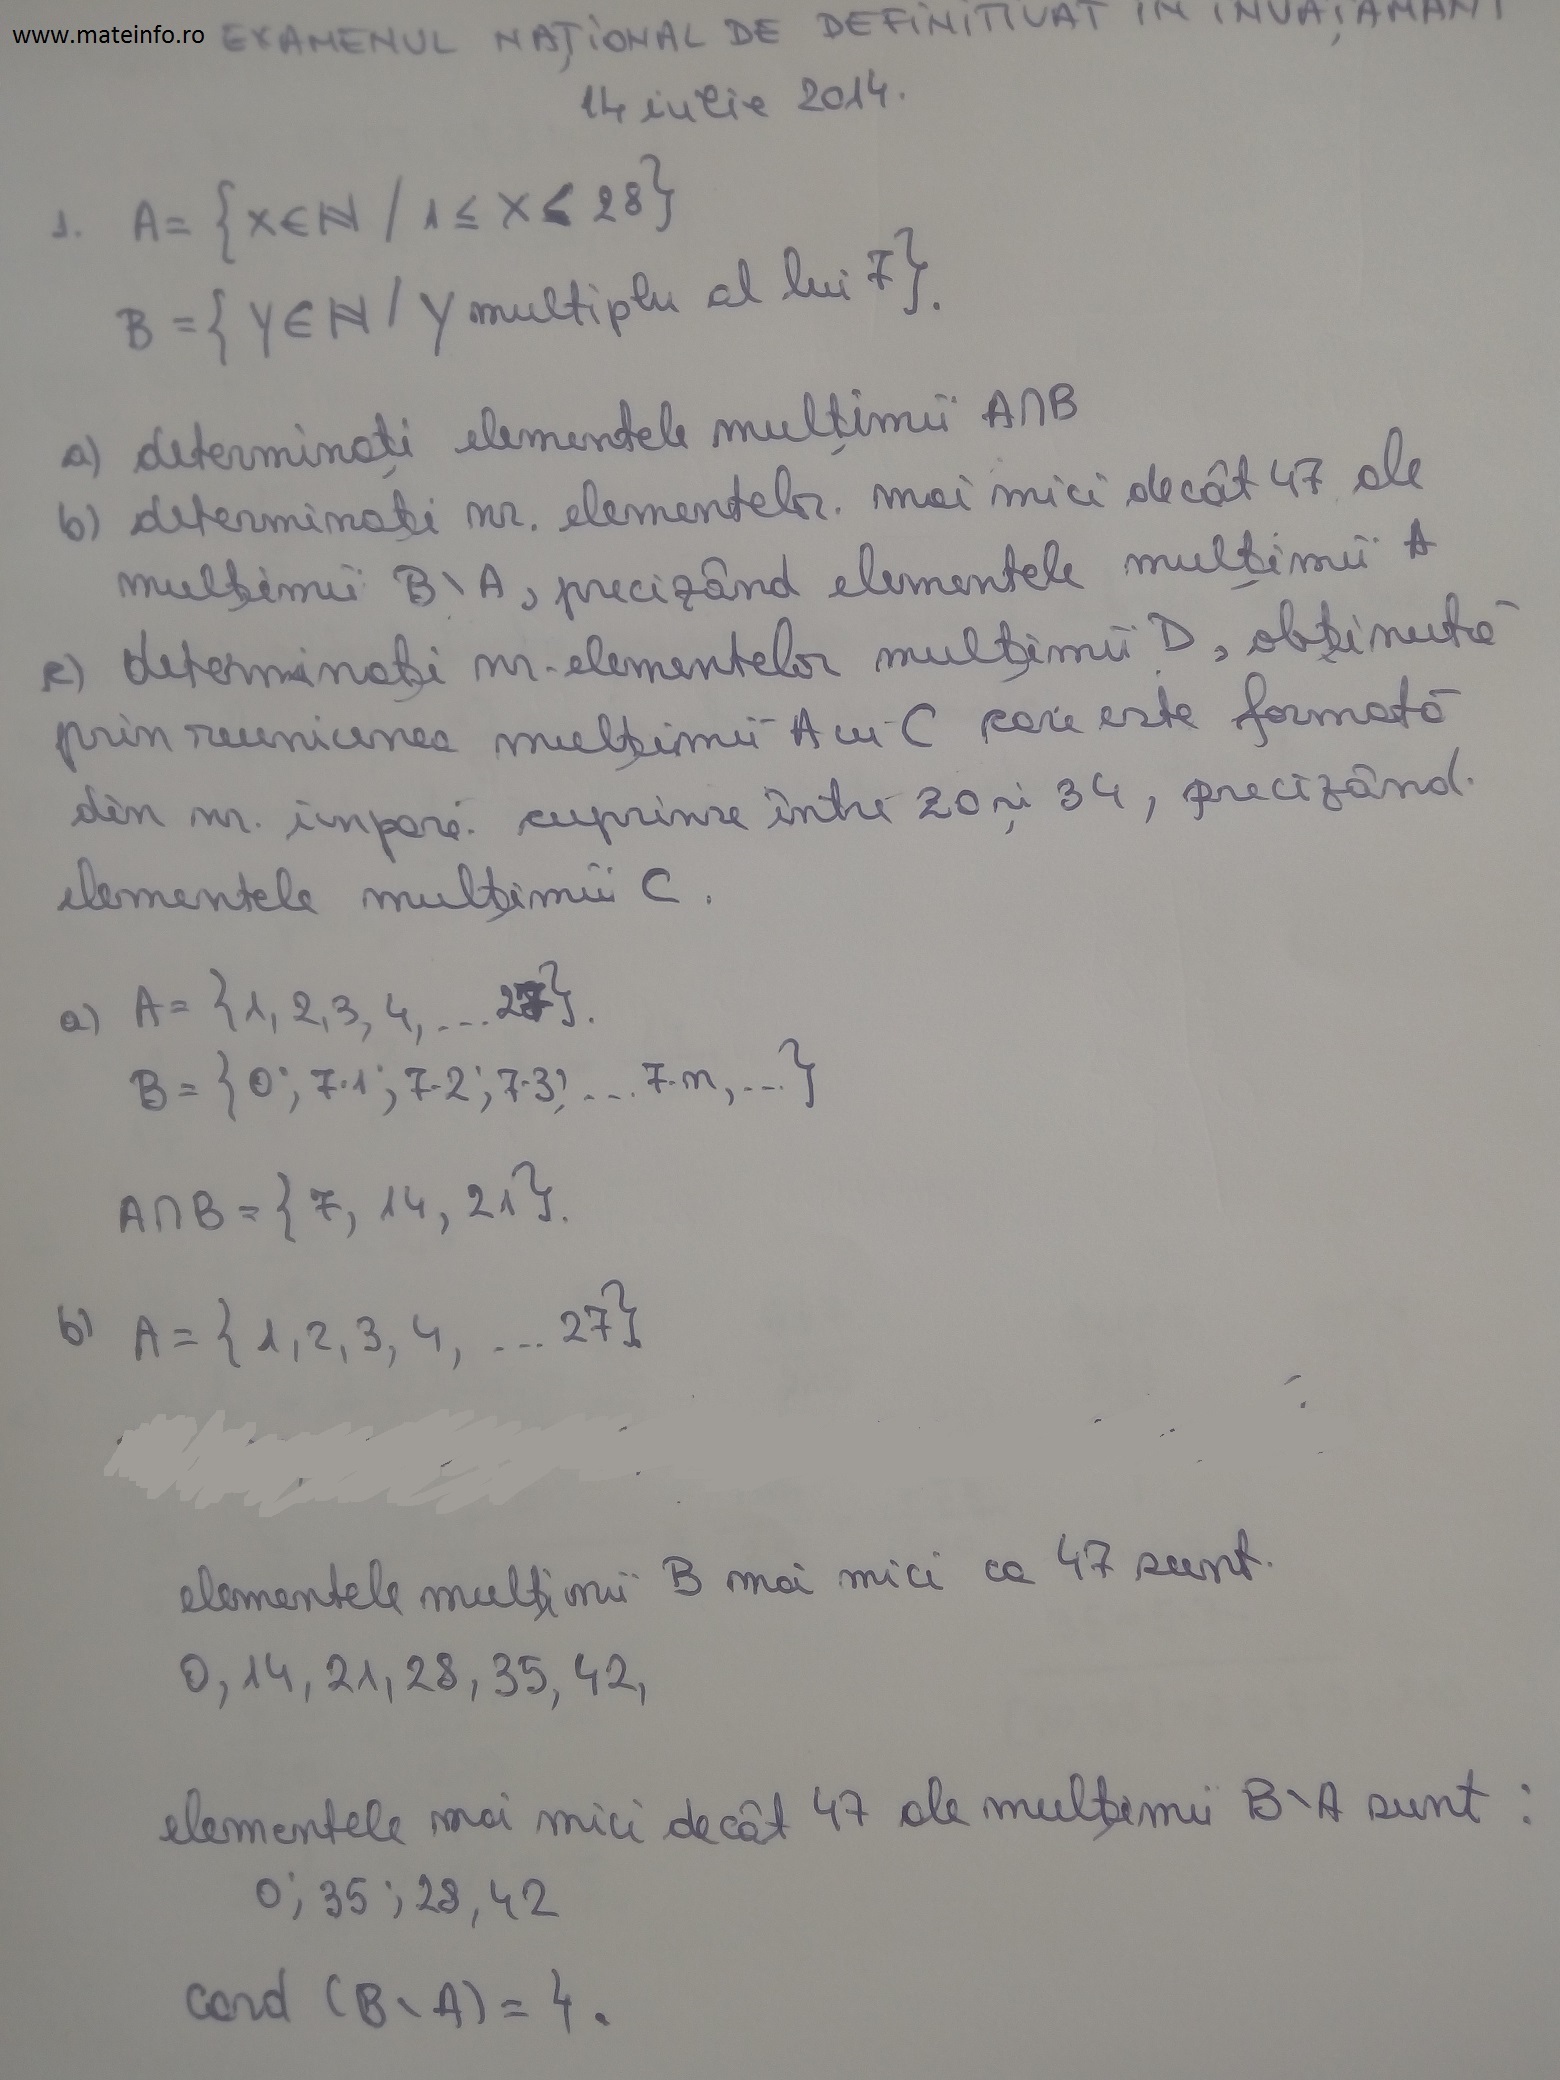 www.mateinfo.ro
EXAMENUL NAȚIONAL DE DEFINITIVAT IN INVAȚAMANT
14 iulie 2014.
1. A = {x∈N / 1 ≤ x < 28}
B = {y∈N / y multiplu al lui 7}.
a) determinați elementele mulțimii A∩B
b) determinați nr. elementelor. mai mici decât 47 ale
mulțimii B\A, precizând elementele mulțimii A
c) determinați nr. elementelor mulțimii D, obținută
prin reuniunea mulțimii A cu C care este formată
din nr. impare. cuprinse între 20 și 34, precizând.
elementele mulțimii C.
a) A = {1, 2, 3, 4, ... 27}.
B = {0; 7·1; 7·2; 7·3; ... 7·n, ...}
A∩B = {7, 14, 21}.
b) A = {1, 2, 3, 4, ... 27}
elementele mulțimii B mai mici ca 47 sunt.
0, 14, 21, 28, 35, 42,
elementele mai mici decât 47 ale mulțimii B\A sunt :
0; 35; 28, 42
card (B\A) = 4.